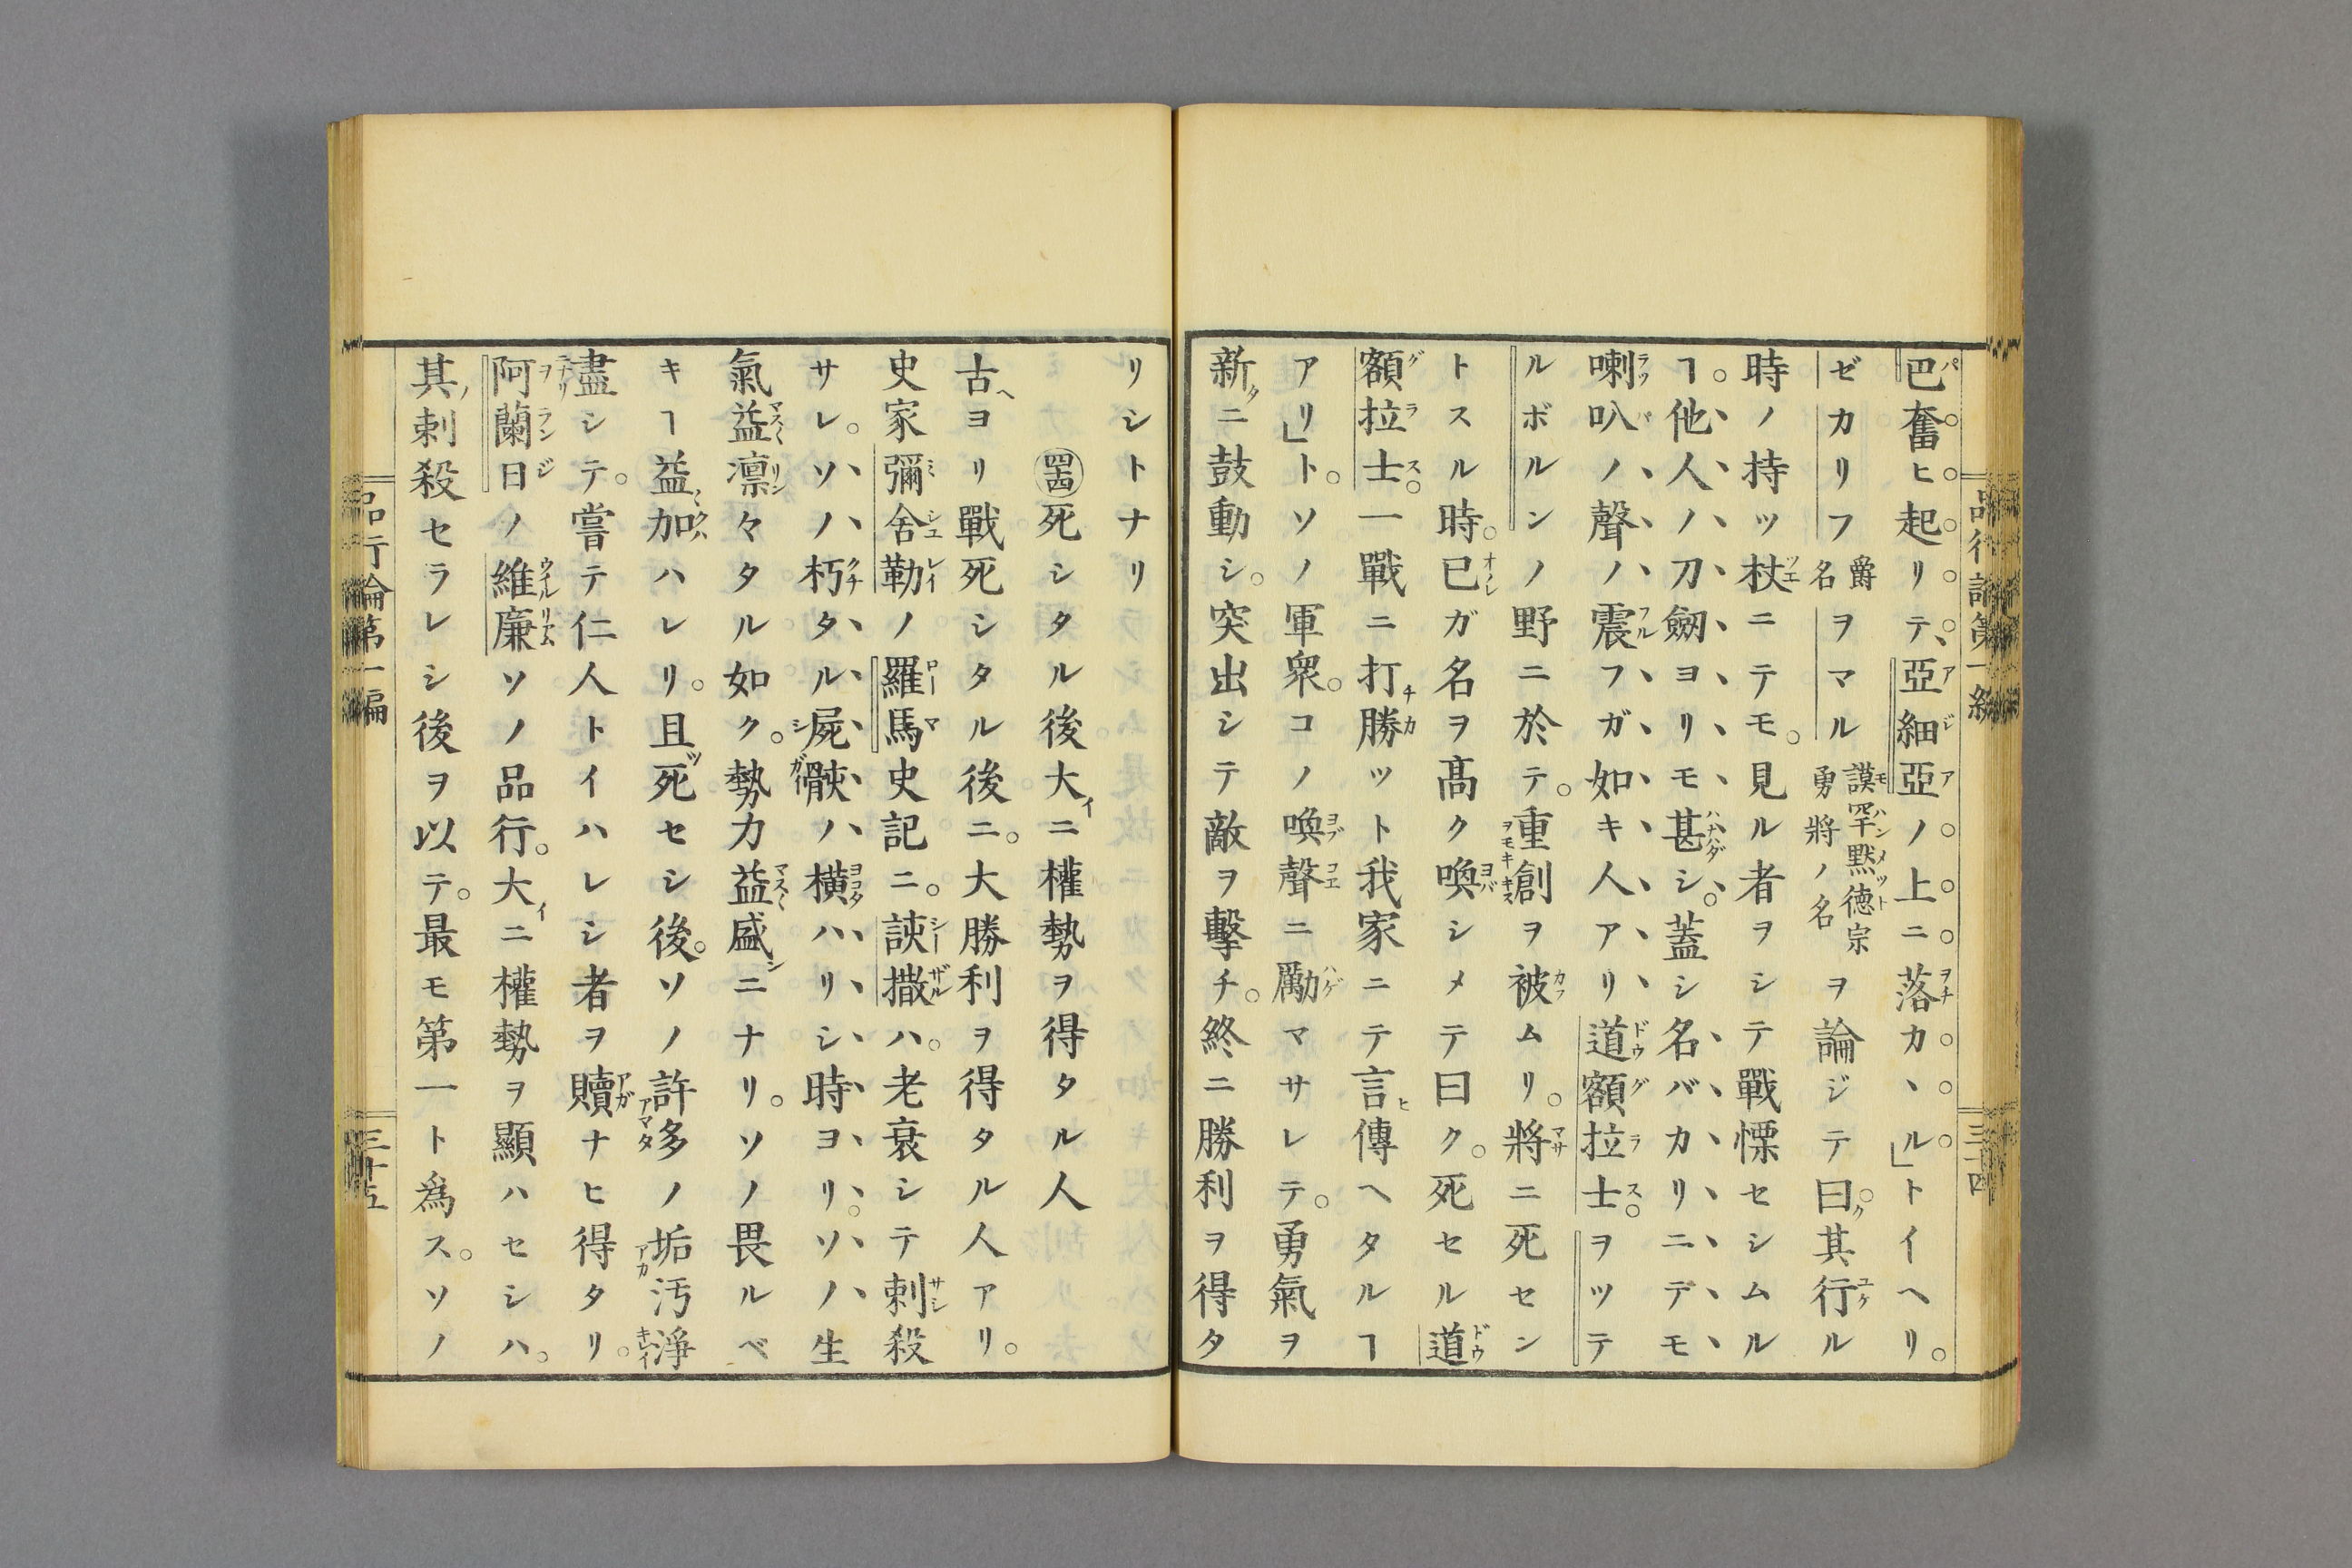 巴奮ヒ起リテ、亞細亞ノ上ニ落カヽル」トイヘリ。
ゼカリフ爵名ヲマル謨罕默德宗勇將ノ名ヲ論ジテ曰ク。其行ル
時ノ持ツ杖ニテモ。見ル者ヲシテ戰慄セシムル
ヿ。他人ノ刀劒ヨリモ甚シ。蓋シ名バカリニデモ
喇叭ノ聲ノ震フガ如キ人アリ道額拉士。ヲツテ
ルボルンノ野ニ於テ。重創ヲ被ムリ。將ニ死セシ
トスル時。已ガ名ヲ髙ク喚シメテ曰ク。死セル道
額拉士。一戰ニ打勝ツト我家ニテ言傳ヘタルヿ
アリ」ト。ソノ軍衆。コノ喚聲ニ勵マサレテ。勇氣ヲ
新ニ鼓動シ。突出シテ敵ヲ擊チ。終ニ勝利ヲ得タ
リシトナリ
死シタル後大ニ權勢ヲ得タル人
古ヨリ戰死シタル後ニ。大勝利ヲ得タル人アリ。
史家彌舍勒ノ羅馬史記ニ。該撒ハ。老衰シテ刺殺
サレ。ソノ朽タル屍骸ノ橫ハリシ時ヨリ。ソノ生
氣益凛々タル如ク。勢力益盛ニナリ。ソノ畏ルベ
キヿ益加ハレリ。且死セシ後。ソノ許多ノ垢汚淨
盡シテ。嘗テ仁人トイハレシ者ヲ贖ナヒ得タリ。
阿蘭日ノ維廉ソノ品行。大ニ權勢ヲ顯ハセシハ。
其刺殺セラレシ後ヲ以テ。最モ第一ト爲ス。ソノ
品行論第一編
三十五